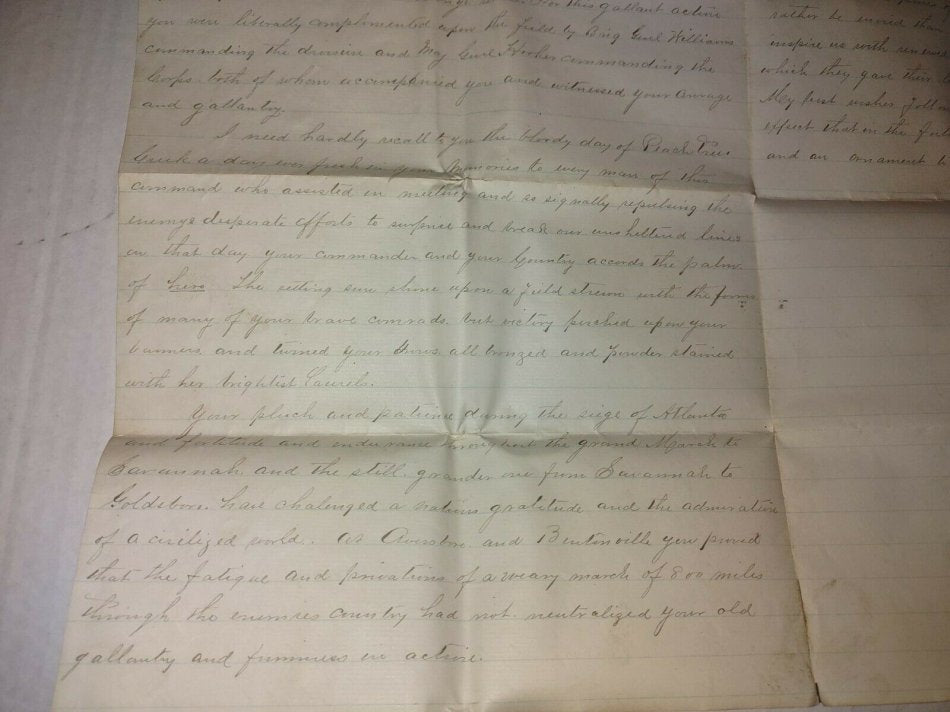 For this gallant action
you were literally complimented upon the field by Brig Genl Williams
commanding the division and Maj Genl Hooker commanding the
Corps. both of whom accompanied you and witnessed your courage
and gallantry.
I need hardly recall to you the bloody day of Peach Tree
Creek a days ever fresh in your memories to every man of this
command who assisted in meeting and so signally repulsing the
enemys desperate efforts to surprise and break our unsheltered lines
on that day your commander and your Country accords the palm
of hero The setting sun shone upon a field strewn with the forms
of many of your brave comrads. but victory perched upon your
banners and turned your brows all bronzed and powder stained
with her brightist Laurels.
Your pluck and patience during the siege of Atlanta
and fortitude and endurance throughout the grand March to
Savannah and the still grander one from Savannah to
Goldsboro. have chalenged a nations gratitude and the admiration
of a civilized world. at Averboro and Bentonville you proved
that the fatigue and privations of a weary march of 800 miles
through the enemies country had not neutralized your old
gallantry and firmness in action.
rather be moved than
inspire us with renewed
which they gave their
My best wishes follow
effect that in the
and an ornament to